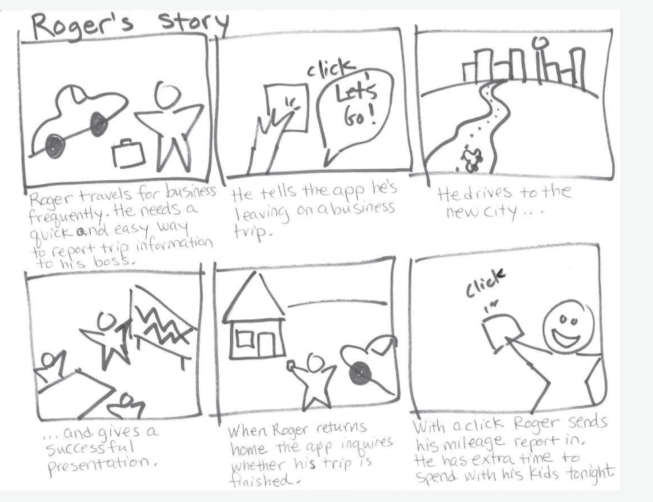 Roger's Story
click
Let's
Go!
Roger travels for business
frequently. He needs a
quick and easy way
to report trip information
to his boss.
He tells the app he's
leaving on a business
trip.
He drives to the
new city...
...and gives a
successful
presentation.
When Roger returns
home the app inquires
whether his trip is
finished.
click
With a click Roger sends
his mileage report in.
He has extra time to
spend with his kids tonight